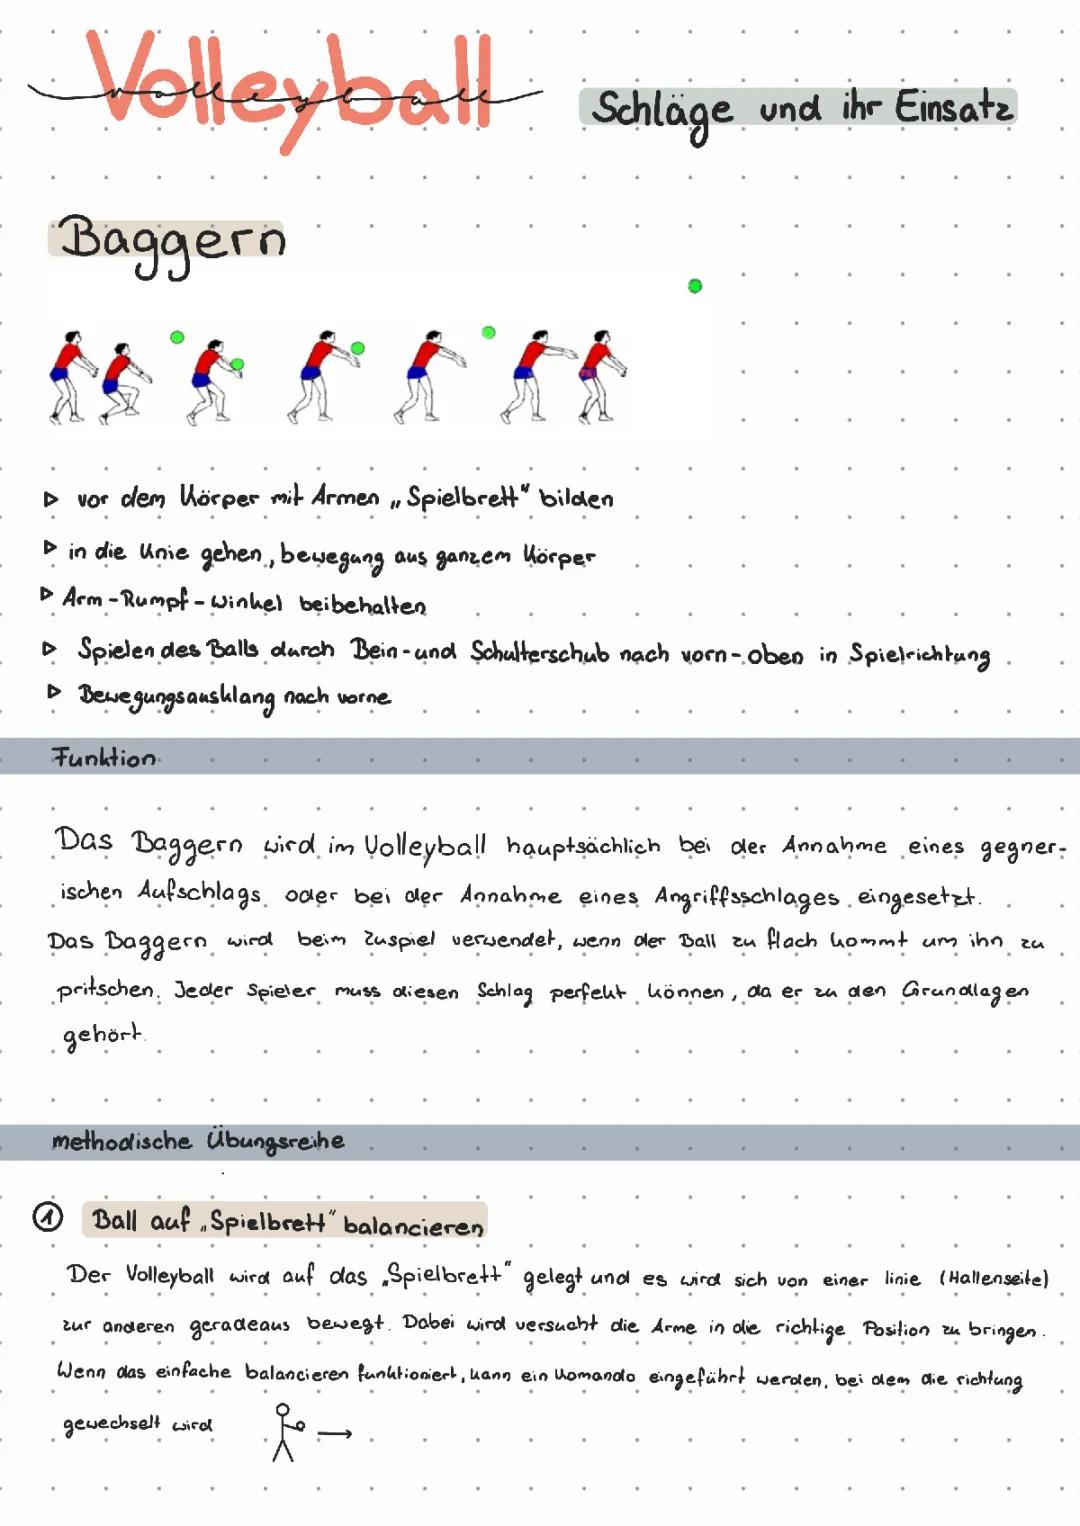 Volleyball
volleyball
Schläge und ihr Einsatz
Baggern
▷ vor dem Körper mit Armen „Spielbrett" bilden
▷ in die Knie gehen, bewegung aus ganzem Körper
▷ Arm-Rumpf-winkel beibehalten
▷ Spielen des Balls durch Bein- und Schulterschub nach vorn-oben in Spielrichtung
▷ Bewegungsausklang nach vorne
Funktion
Das Baggern wird im Volleyball hauptsächlich bei der Annahme eines gegner-
ischen Aufschlags oder bei der Annahme eines Angriffsschlages eingesetzt.
Das Baggern wird beim Zuspiel verwendet, wenn der Ball zu flach kommt um ihn zu
pritschen. Jeder Spieler muss diesen Schlag perfekt können, da er zu den Grundlagen
gehört.
methodische Übungsreihe
① Ball auf „Spielbrett" balancieren
Der Volleyball wird auf das „Spielbrett" gelegt und es wird sich von einer linie (Hallenseite)
zur anderen geradeaus bewegt. Dabei wird versucht die Arme in die richtige Position zu bringen.
Wenn das einfache balancieren funktioniert, kann ein Komando eingeführt werden, bei dem die richtung
gewechselt wird